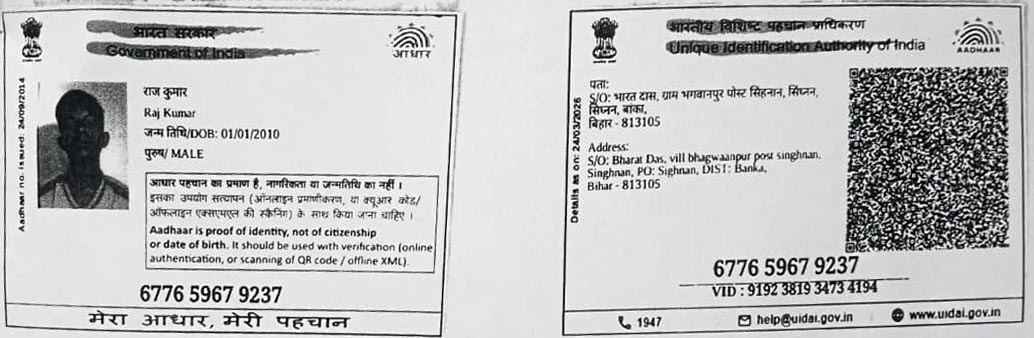 भारत सरकार
Government of India
आधार
Aadhaar no. issued: 24/09/2014
राज कुमार
Raj Kumar
जन्म तिथि/DOB: 01/01/2010
पुरुष/ MALE
आधार पहचान का प्रमाण है, नागरिकता या जन्मतिथि का नहीं ।
इसका उपयोग सत्यापन (ऑनलाइन प्रमाणीकरण, या क्यूआर कोड/
ऑफलाइन एक्सएमएल की स्कैनिंग) के साथ किया जाना चाहिए ।
Aadhaar is proof of identity, not of citizenship
or date of birth. It should be used with verification (online
authentication, or scanning of QR code / offline XML).
6776 5967 9237
मेरा आधार, मेरी पहचान
भारतीय विशिष्ट पहचान प्राधिकरण
Unique Identification Authority of India
AADHAAR
Details as on: 24/03/2026
पता:
S/O: भारत दास, ग्राम भगवानपुर पोस्ट सिहनान, सिघ्नन,
सिघ्नन, बांका,
बिहार - 813105
Address:
S/O: Bharat Das, vill bhagwaanpur post singhnan,
Singhnan, PO: Sighnan, DIST: Banka,
Bihar - 813105
6776 5967 9237
VID : 9192 3819 3473 4194
1947
help@uidai.gov.in
www.uidai.gov.in